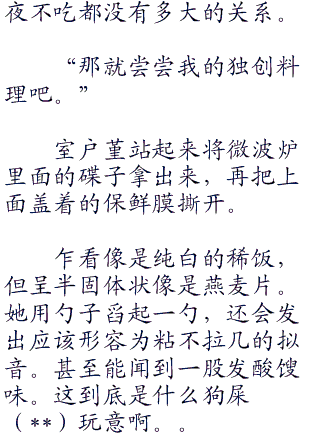 夜不吃都没有多大的关系。
“那就尝尝我的独创料
理吧。”
室户堇站起来将微波炉
里面的碟子拿出来，再把上
面盖着的保鲜膜撕开。
乍看像是纯白的稀饭，
但呈半固体状像是燕麦片。
她用勺子舀起一勺，还会发
出应该形容为粘不拉几的拟
音。甚至能闻到一股发酸馊
味。这到底是什么狗屎
（**）玩意啊。。